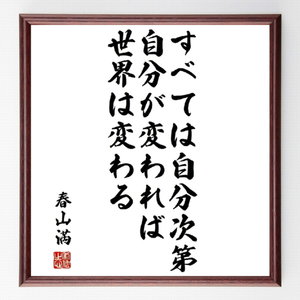 すべては自分次第
自分が変われば
世界は変わる
春山満